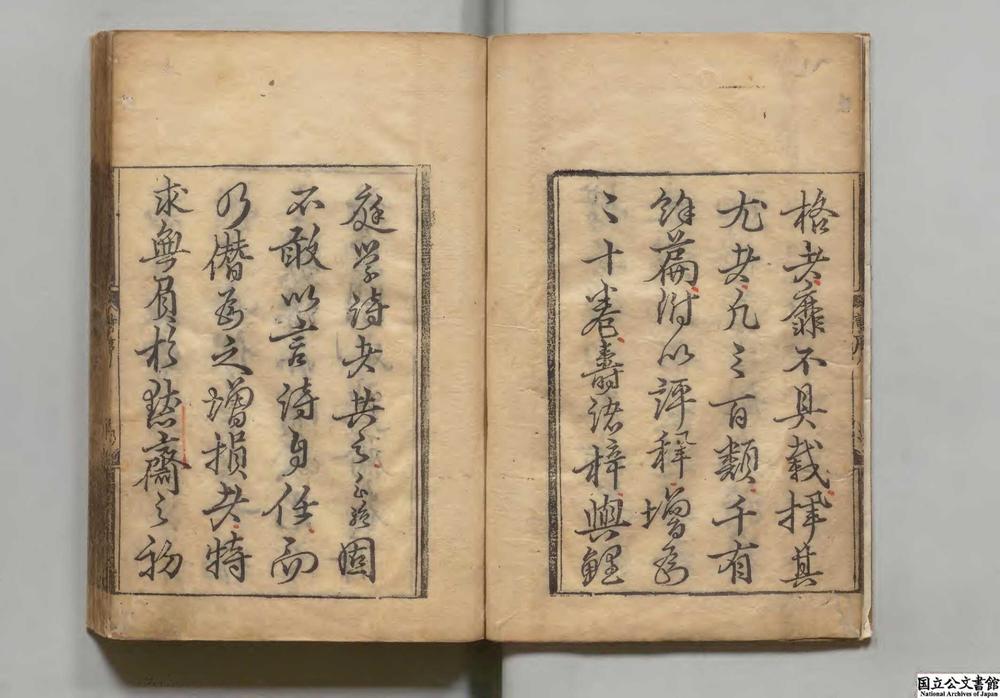 格者靡不具載擇其
尤者凡三百類千有
餘篇附以評釋增爲
二十卷壽諸梓與鯉
庭學詩者共之予固
不敢以言詩自任而
乃僭爲之增損者特
求無負於默齋之初
國立公文書館
National Archives of Japan